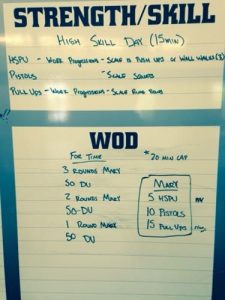 STRENGTH/SKILL
HIGH SKILL DAY (15MIN)
HSPU - WORK PROGRESSIONS - SCALE TO PUSH UPS OR WALL WALKS (3)
PISTOLS - SCALE SQUATS
PULL UPS - WORK PROGRESSIONS - SCALE RING ROWS
WOD
FOR TIME
* 20 MIN CAP
3 ROUNDS MARY
50 DU
2 ROUNDS MARY
50 DU
1 ROUND MARY
50 DU
MARY
5 HSPU
10 PISTOLS
15 PULL UPS